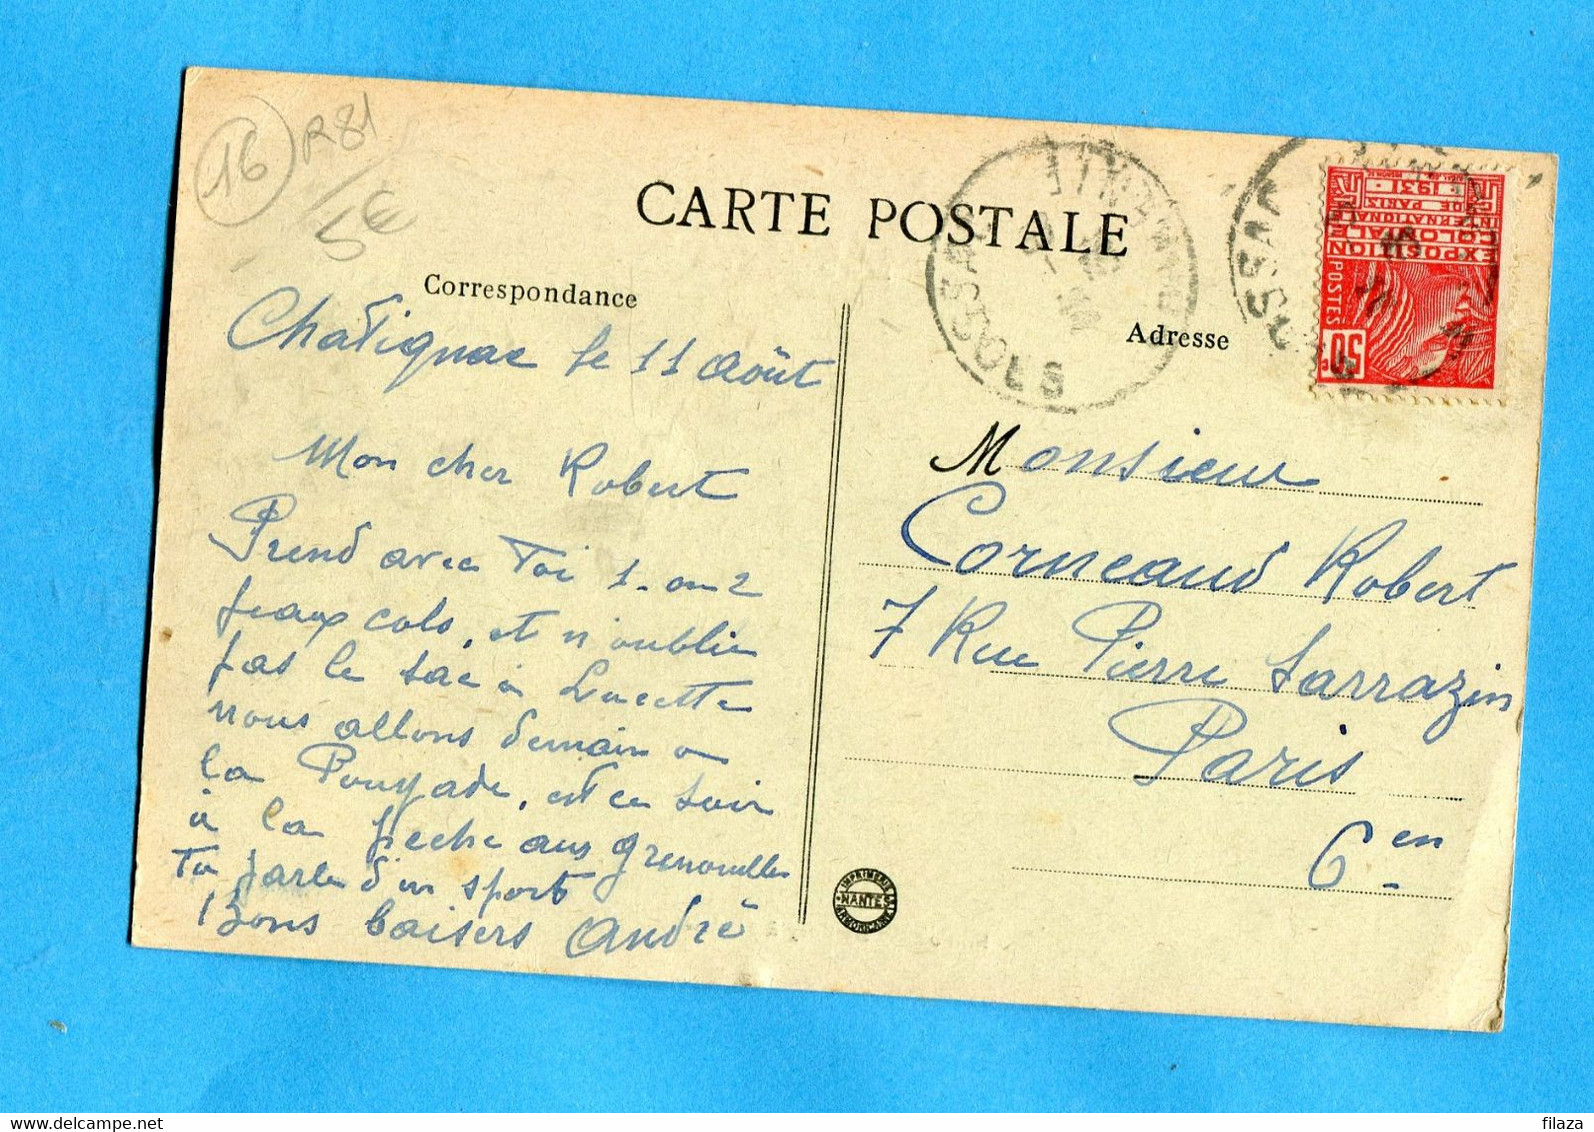 16
R81
5€
CARTE POSTALE
Correspondance
Adresse
Chatignac le 11 Août
Mon cher Robert
Prend avec Toi 1 ou 2
faux cols, et n'oublie
pas le sac à Lucette
nous allons demain a
la Pouyade, et ce soir
à la peche aux grenouilles
Tu parle d'un sport
Bons baisers André
Monsieur
Corneaud Robert
7 Rue Pierre Sarrazin
Paris
6 en
EXPOSITION
COLONIALE
INTERNATIONALE
DE PARIS
1931
POSTES
50c
IMPRIMERIE
NANTES
ARMORICAINE
filaza